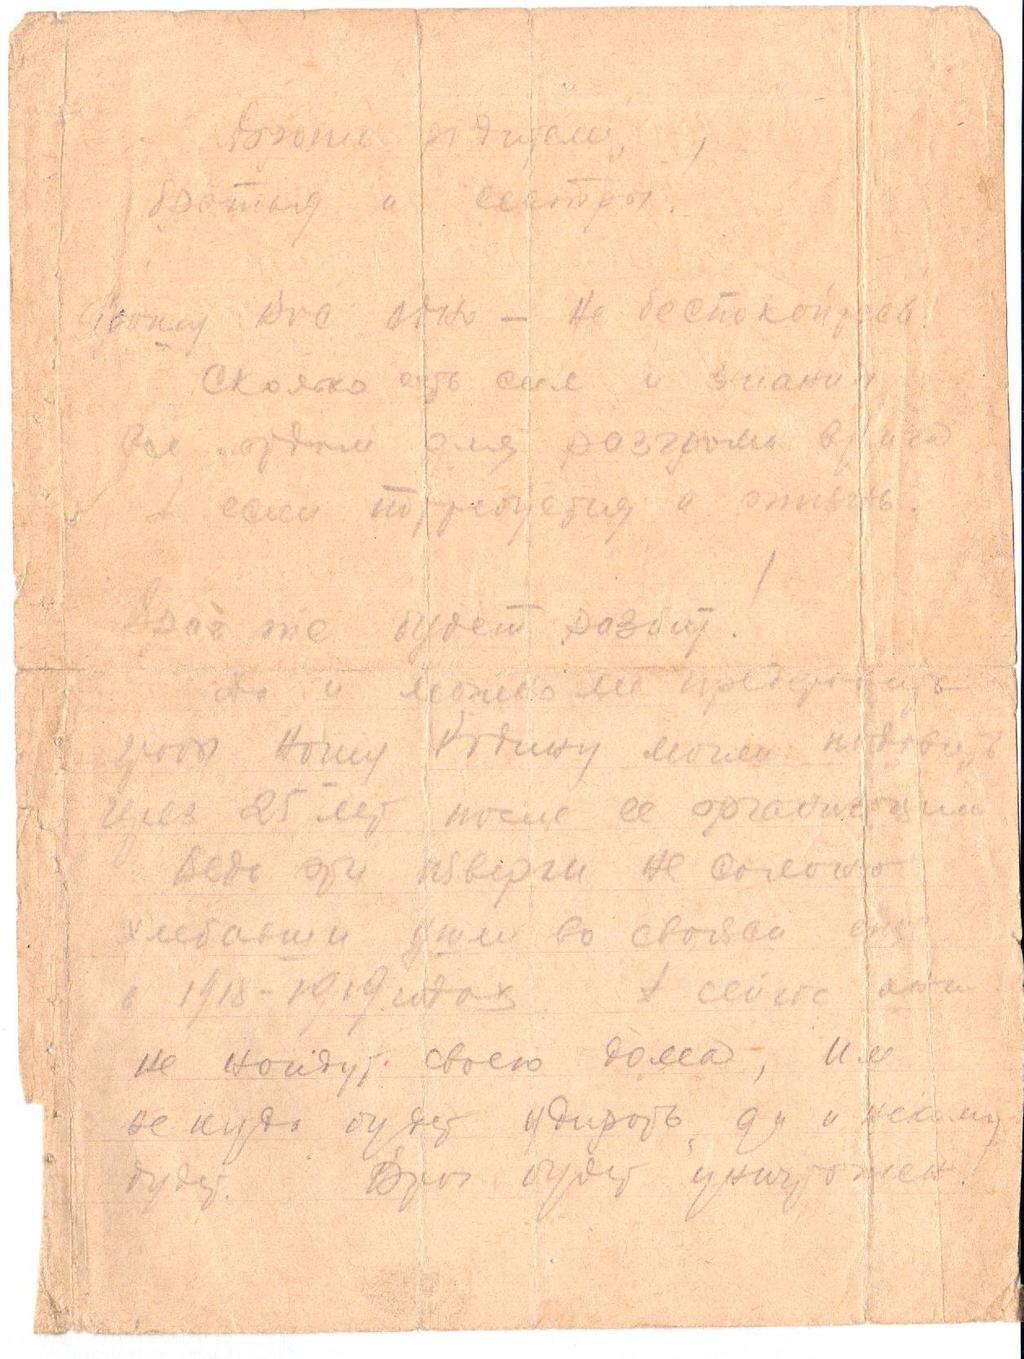 родители,
братья и сестры.
Прошу Вас одно - не беспокойтесь
Сколько есть сил и знаний
все отдам для разгрома врага
А если потребуется и жизнь.
Враг же будет разбит!
Да и можно ли предположить
чтоб нашу Родину могли подавить
через 25 лет после ее организации
Ведь эти изверги не солоно
хлебавши ушли во свояси еще
в 1918-1919 годах. А сейчас они
не найдут своего дома, им
не куда будет удирать, да и некому
будет. Враг будет уничтожен.